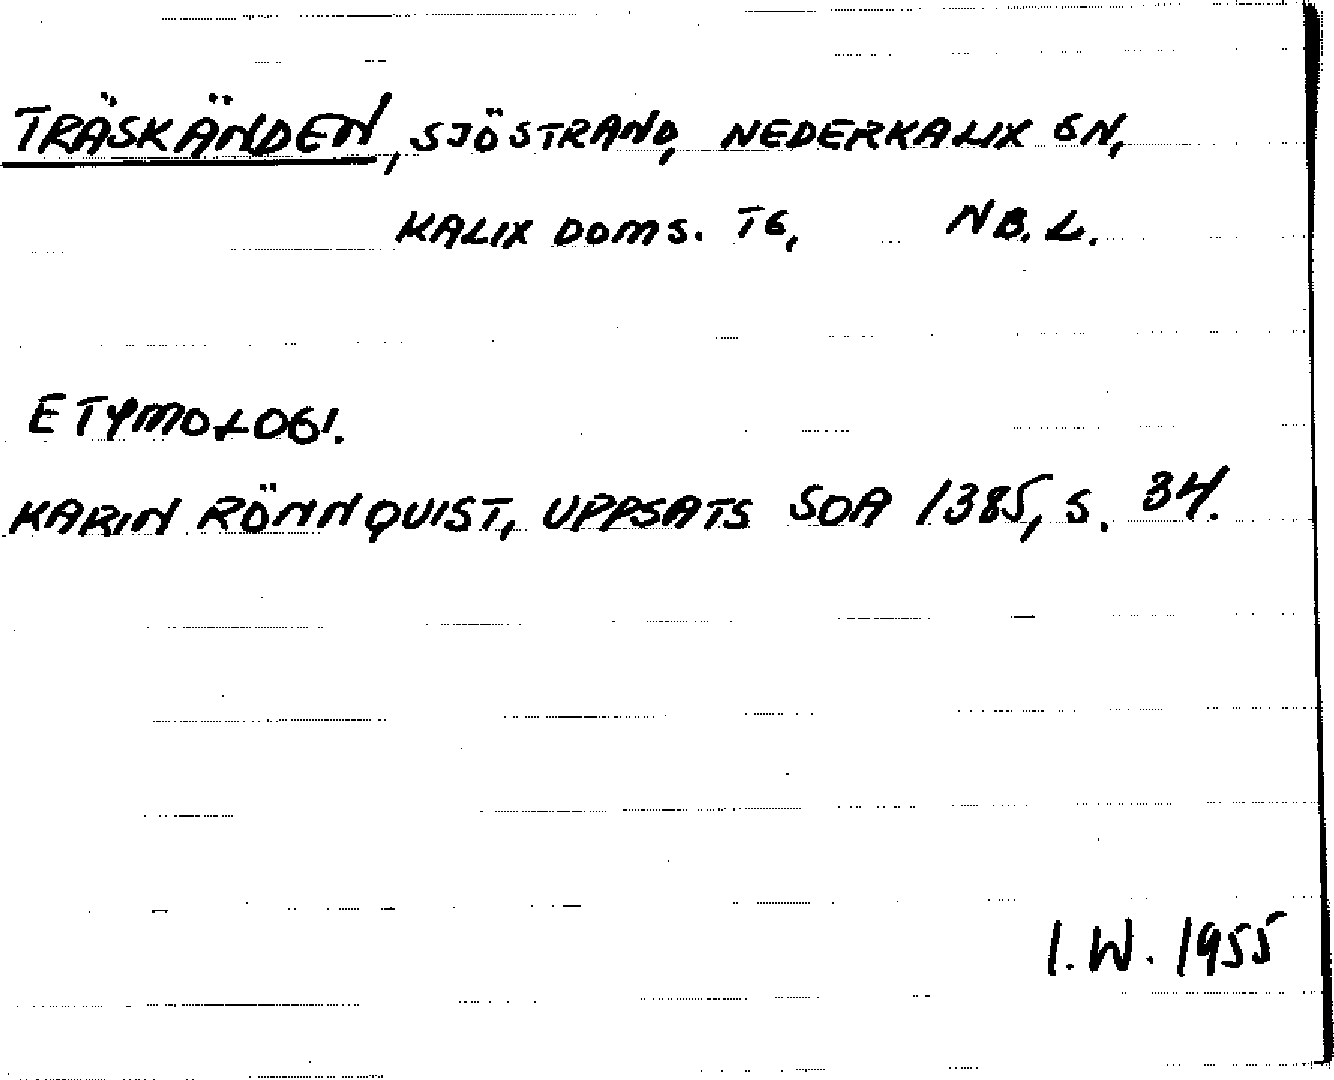 TRÄSKÄNDEN, SJÖSTRAND, NEDERKALIX SN,
KALIX DOMS. TG, NB. L.
ETYMOLOGI.
KARIN RÖNNQUIST, UPPSATS SOA 1385, S. 34.
I. W. 1955